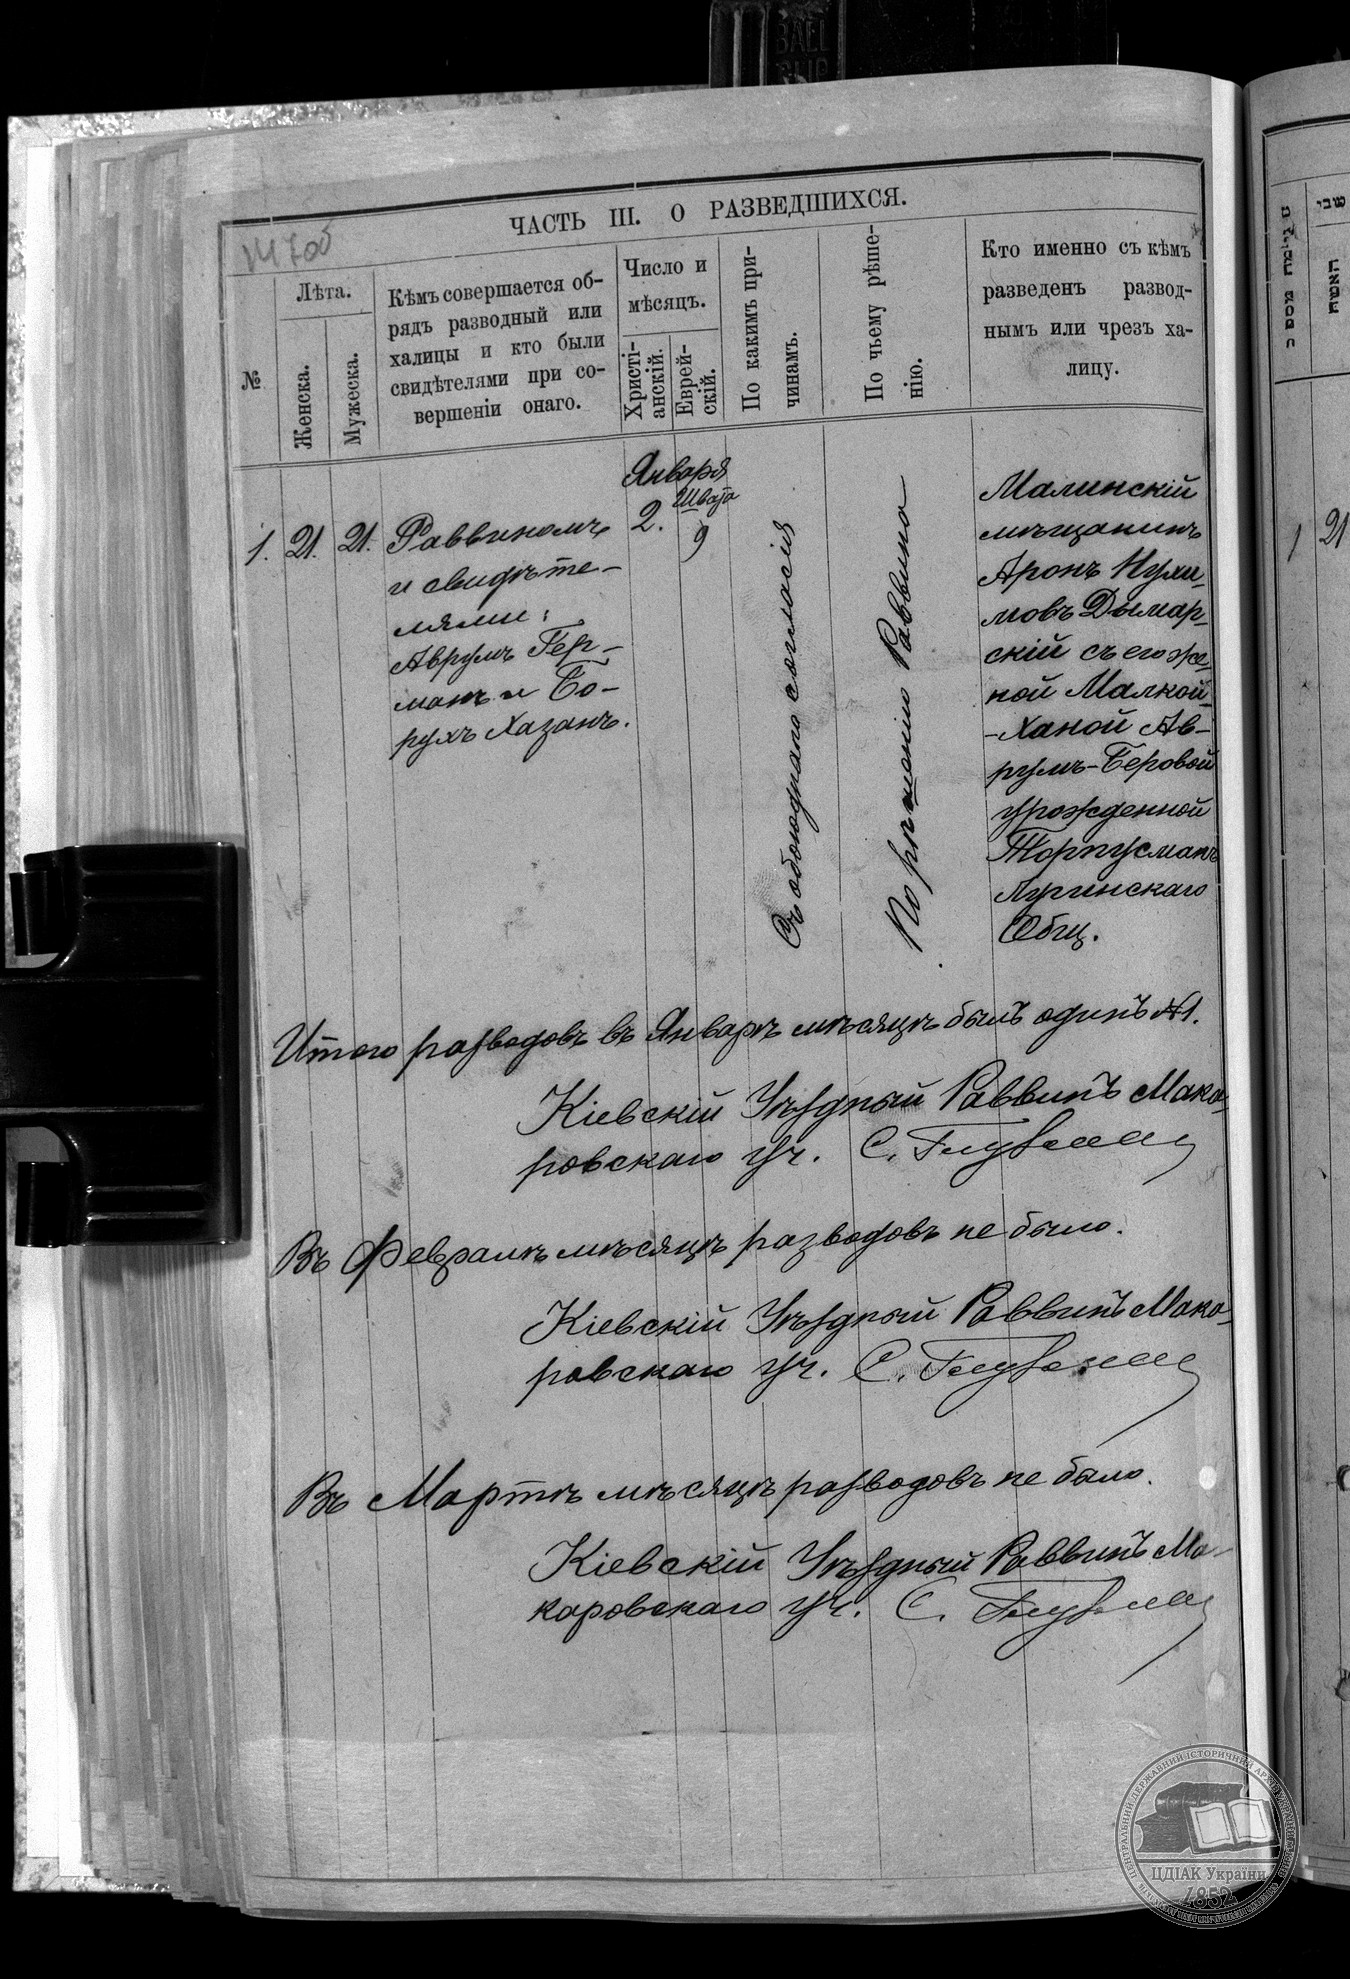 ЧАСТЬ III. О РАЗВЕДШИХСЯ.
№
Лѣта.
Женска.
Мужеска.
Кѣмъ совершается об-
рядъ разводный или
халицы и кто были
свидѣтелями при со-
вершеніи онаго.
Число и
мѣсяцъ.
Христі-
анскій.
Еврей-
скій.
По какимъ при-
чинамъ.
По чьему рѣше-
нію.
Кто именно съ кѣмъ
разведенъ развод-
нымъ или чрезъ ха-
лицу.
1.
21.
21.
Раввиномъ
и свидѣте-
лями:
Аврумъ Гер-
манъ и Бо-
рухъ Хазанъ.
Января
2.
Швата
9
Съ обоюднаго согласія
По рѣшенію Раввина
Малинскій
мѣщанинъ
Аронъ Нухи-
мовъ Дымар-
скій съ его же-
ной Малкой-
-Ханой Ав-
румъ-Беровой
урожденной
Торпусманъ
Лугинскаго
Общ.
Итого разводовъ въ Январѣ мѣсяцѣ былъ одинъ №1.
Кіевскій Уѣздный Раввинъ Мака-
ровскаго уч. С.
Въ Февралѣ мѣсяцѣ разводовъ не было.
Кіевскій Уѣздный Раввинъ Мака-
ровскаго уч. С.
Въ Мартѣ мѣсяцѣ разводовъ не было.
Кіевскій Уѣздный Раввинъ Ма-
каровскаго уч. С.
שבי
האשה
1
21
ЦЕНТРАЛЬНИЙ ДЕРЖАВНИЙ ІСТОРИЧНИЙ АРХІВ УКРАЇНИ
ЦДІАК України
1852